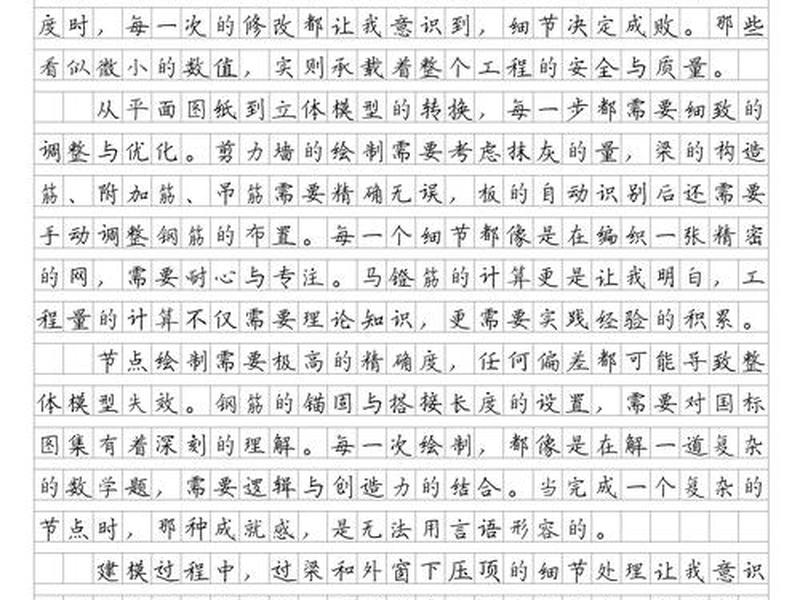 度时，每一次的修改都让我意识到，细节决定成败。那些
看似微小的数值，实则承载着整个工程的安全与质量。
从平面图纸到立体模型的转换，每一步都需要细致的
调整与优化。剪力墙的绘制需要考虑抹灰的量，梁的构造
筋、附加筋、吊筋需要精确无误，板的自动识别后还需要
手动调整钢筋的布置。每一个细节都像是在编织一张精密
的网，需要耐心与专注。马镫筋的计算更是让我明白，工
程量的计算不仅需要理论知识，更需要实践经验的积累。
节点绘制需要极高的精确度，任何偏差都可能导致整
体模型失效。钢筋的锚固与搭接长度的设置，需要对国标
图集有着深刻的理解。每一次绘制，都像是在解一道复杂
的数学题，需要逻辑与创造力的结合。当完成一个复杂的
节点时，那种成就感，是无法用言语形容的。
建模过程中，过梁和外窗下压顶的细节处理让我意识